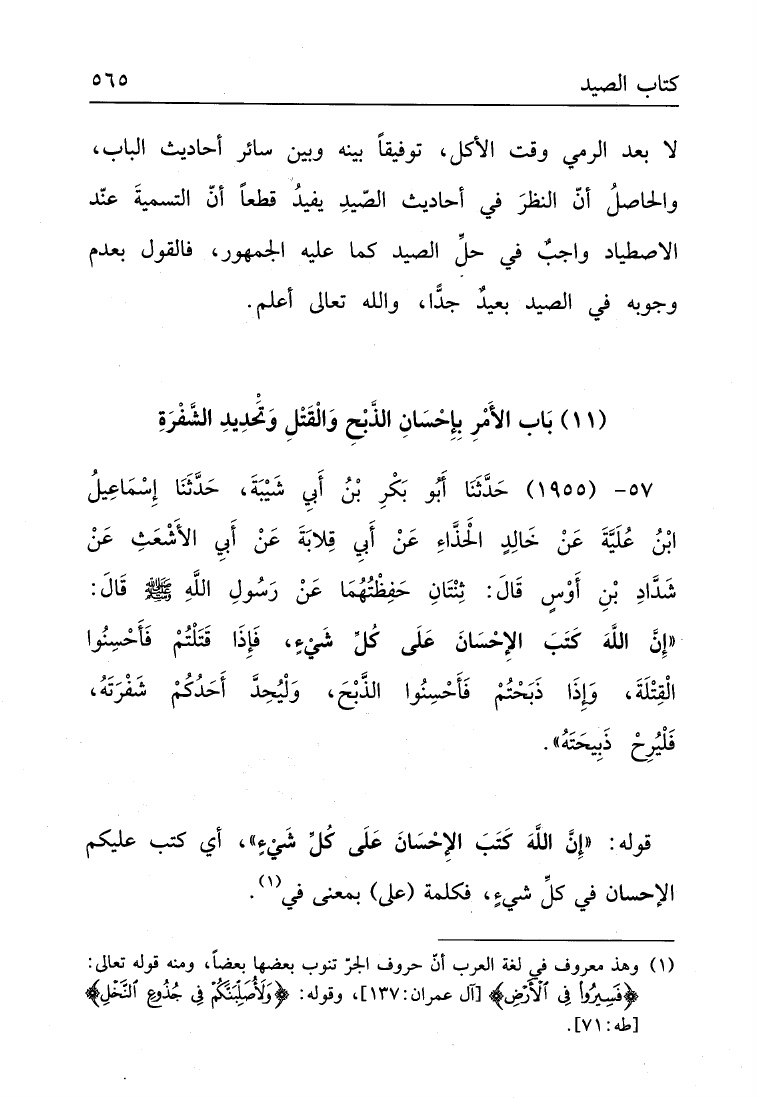 كتاب الصيد ٥٦٥
لا بعد الرمي وقت الأكل، توفيقاً بينه وبين سائر أحاديث الباب،
والحاصلُ أنّ النظرَ في أحاديث الصّيدِ يفيدُ قطعاً أنّ التسميةَ عنْد
الاصطياد واجبٌ في حلِّ الصيد كما عليه الجمهور، فالقول بعدم
وجوبه في الصيد بعيدٌ جدًّا، والله تعالى أعلم.
(١١) بَاب الأَمْرِ بِإِحْسَانِ الذَّبْحِ وَالْقَتْلِ وَتَحْدِيدِ الشَّفْرَةِ
٥٧- (١٩٥٥) حَدَّثَنَا أَبُو بَكْرِ بْنُ أَبِي شَيْبَةَ، حَدَّثَنَا إِسْمَاعِيلُ
ابْنُ عُلَيَّةَ عَنْ خَالِدٍ الْحَذَّاءِ عَنْ أَبِي قِلابَةَ عَنْ أَبِي الأَشْعَثِ عَنْ
شَدَّادِ بْنِ أَوْسٍ قَالَ: ثِنْتَانِ حَفِظْتُهُمَا عَنْ رَسُولِ اللَّهِ ﷺ قَالَ:
«إِنَّ اللَّهَ كَتَبَ الإِحْسَانَ عَلَى كُلِّ شَيْءٍ، فَإِذَا قَتَلْتُمْ فَأَحْسِنُوا
الْقِتْلَةَ، وَإِذَا ذَبَحْتُمْ فَأَحْسِنُوا الذَّبْحَ، وَلْيُحِدَّ أَحَدُكُمْ شَفْرَتَهُ،
فَلْيُرِحْ ذَبِيحَتَهُ».
قوله: «إِنَّ اللَّهَ كَتَبَ الإِحْسَانَ عَلَى كُلِّ شَيْءٍ»، أي كتب عليكم
الإحسان في كلِّ شيءٍ، فكلمة (على) بمعنى في(١).
(١) وهذ معروف في لغة العرب أنّ حروف الجرّ تنوب بعضها بعضاً، ومنه قوله تعالى:
﴿فَسِيرُوا۟ فِى ٱلْأَرْضِ﴾ [آل عمران: ١٣٧]، وقوله: ﴿وَلَأُصَلِّبَنَّكُمْ فِى جُذُوعِ ٱلنَّخْلِ﴾
[طه: ٧١].